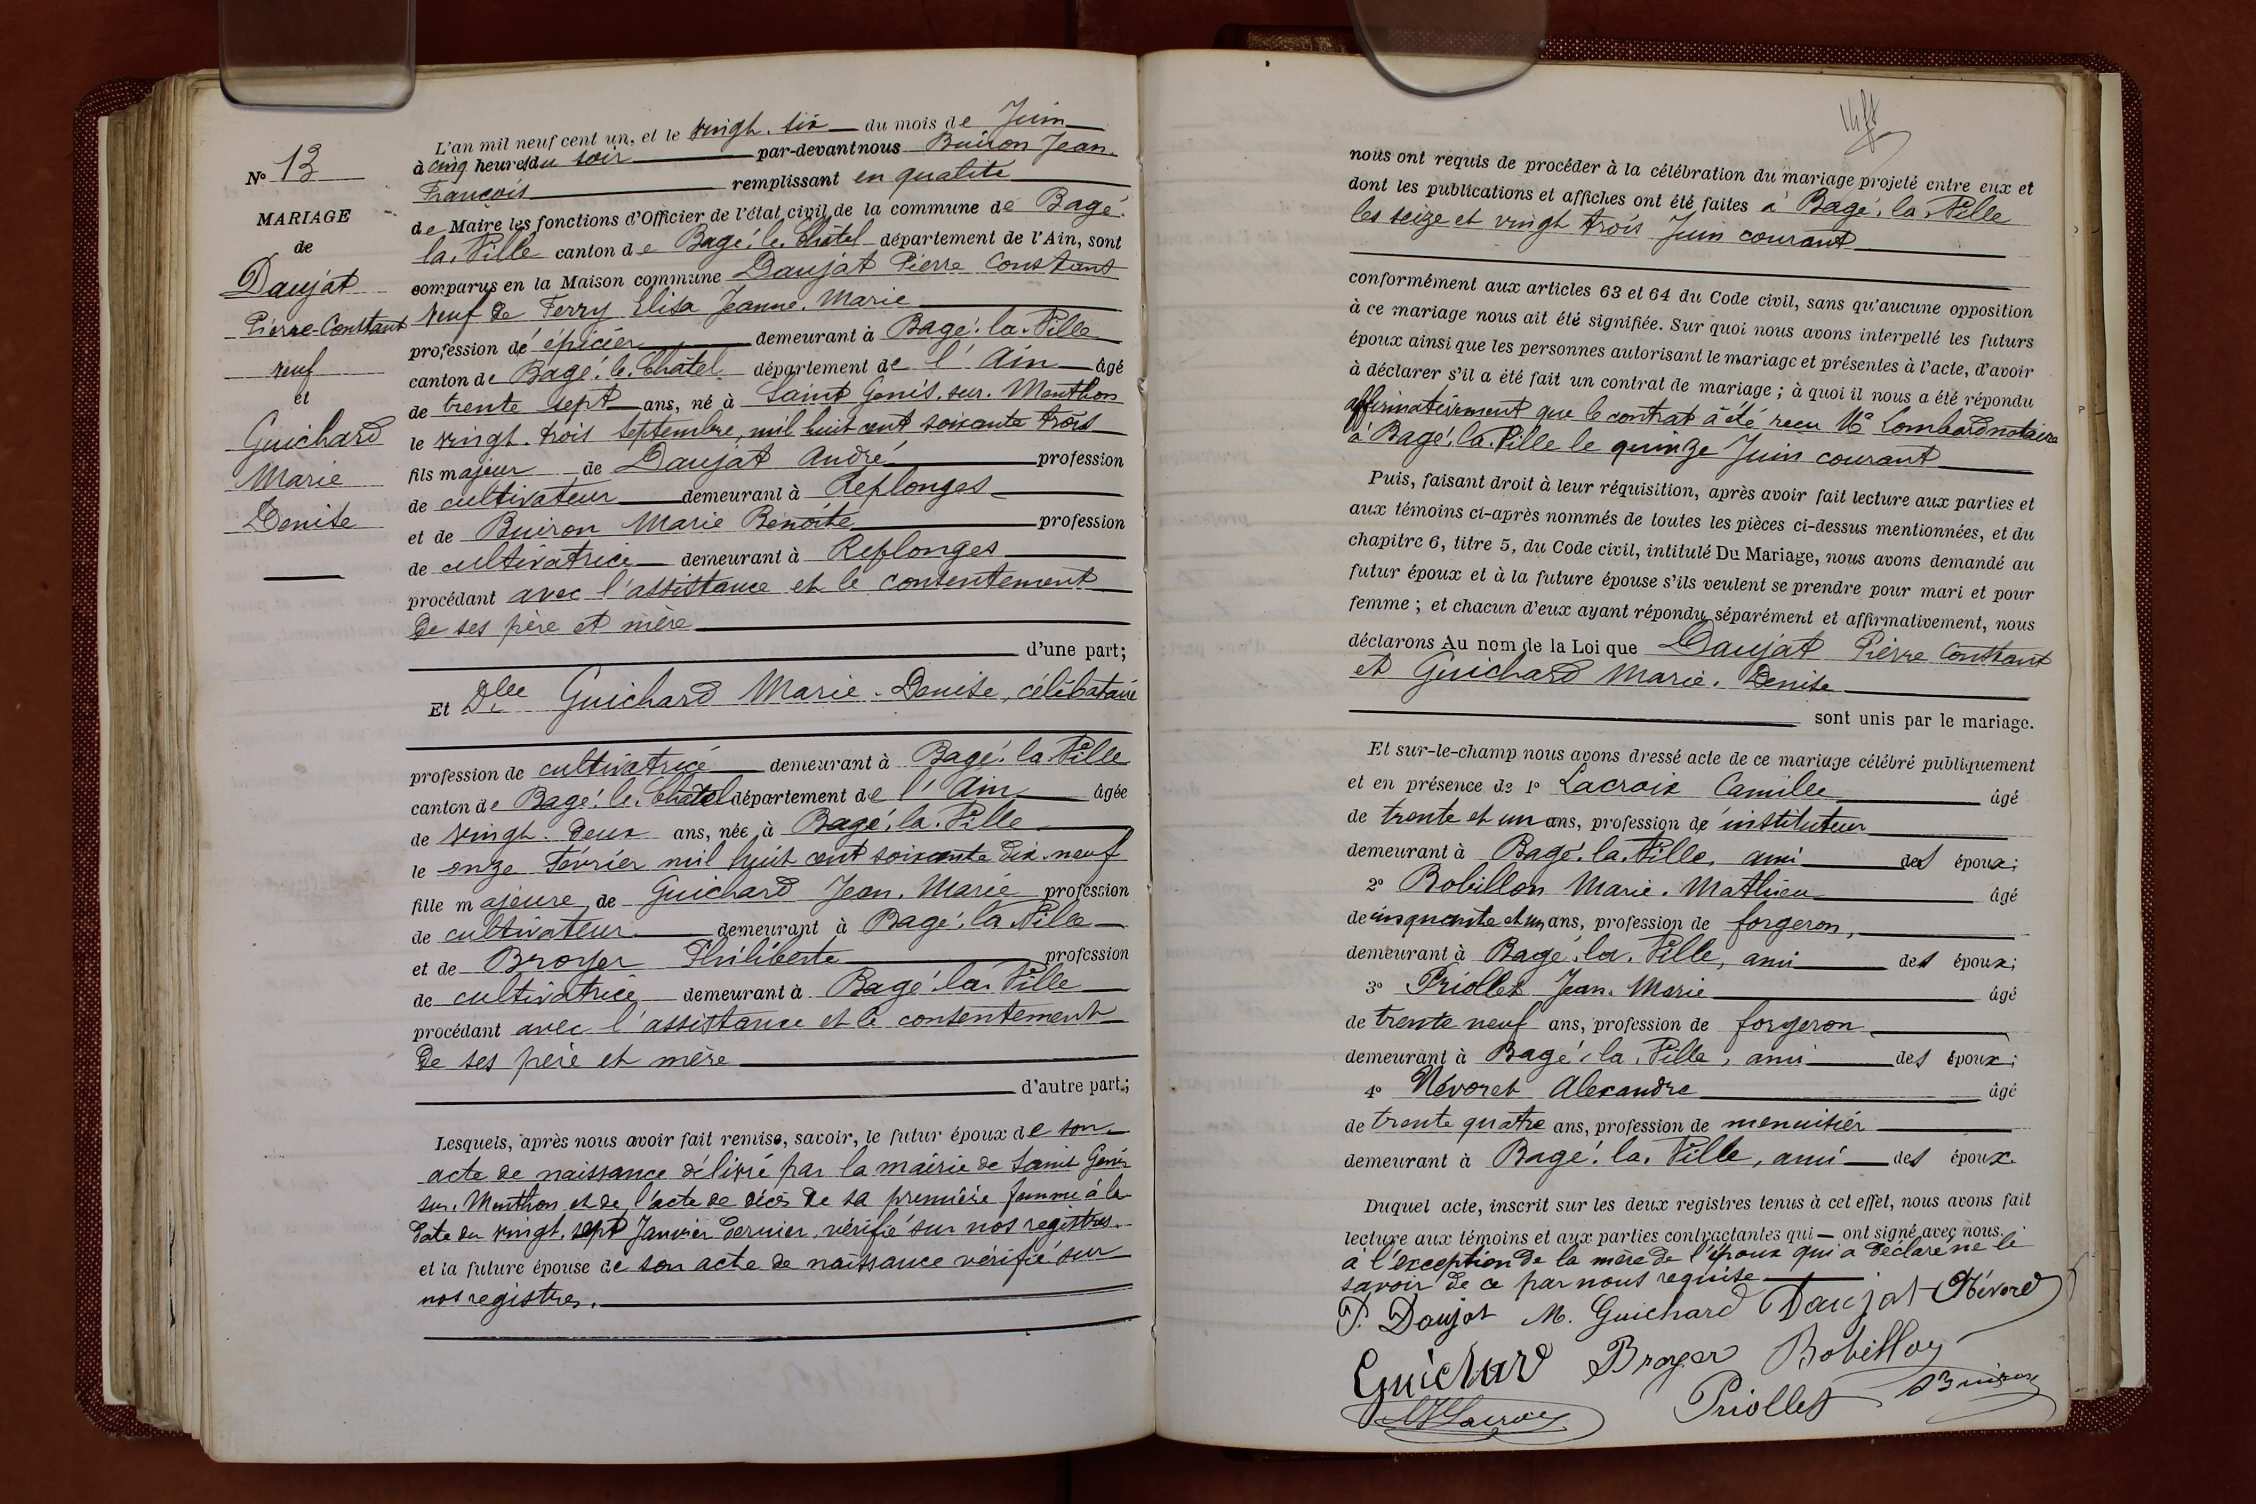 N° 13
MARIAGE
de
Daujat
Pierre-Constant
veuf
et
Guichard
Marie
Denise
L'an mil neuf cent un, et le vingt-six du mois de Juin
à cinq heures du soir par-devant nous Buiron Jean-
François remplissant en qualité
de Maire les fonctions d'Officier de l'état civil de la commune de Bagé-
la-Ville canton de Bagé-le-Châtel département de l'Ain, sont
comparus en la Maison commune Daujat Pierre Constant
veuf de Ferry Elisa Jeanne-Marie
profession d'épicier demeurant à Bagé-la-Ville
canton de Bagé-le-Châtel département de l'Ain âgé
de trente sept ans, né à Saint Genis-sur-Menthon
le vingt-trois Septembre, mil huit cent soixante trois
fils majeur de Daujat André profession
de cultivateur demeurant à Replonges
et de Buiron Marie Benoîte profession
de cultivatrice demeurant à Replonges
procédant avec l'assistance et le consentement
de ses père et mère
d'une part;
Et Dlle Guichard Marie-Denise, célibataire
profession de cultivatrice demeurant à Bagé-la-Ville
canton de Bagé-le-Châtel département de l'Ain âgée
de vingt-deux ans, née à Bagé-la-Ville
le onze Février mil huit cent soixante dix-neuf
fille majeure de Guichard Jean-Marie profession
de cultivateur demeurant à Bagé-la-Ville
et de Broyer Philiberte profession
de cultivatrice demeurant à Bagé-la-Ville
procédant avec l'assistance et le consentement
de ses père et mère
d'autre part;
Lesquels, après nous avoir fait remise, savoir, le futur époux de son
acte de naissance délivré par la mairie de Saint Genis
sur-Menthon et de l'acte de décès de sa première femme à la
date du vingt-sept Janvier dernier, vérifié sur nos registres
et la future épouse de son acte de naissance vérifié sur
nos registres.
nous ont requis de procéder à la célébration du mariage projeté entre eux et
dont les publications et affiches ont été faites à Bagé-la-Ville
les seize et vingt trois Juin courant
conformément aux articles 63 et 64 du Code civil, sans qu'aucune opposition
à ce mariage nous ait été signifiée. Sur quoi nous avons interpellé les futurs
époux ainsi que les personnes autorisant le mariage et présentes à l'acte, d'avoir
à déclarer s'il a été fait un contrat de mariage; à quoi il nous a été répondu
affirmativement que le contrat a été reçu Me Lombard notaire
à Bagé-la-Ville le quinze Juin courant
Puis, faisant droit à leur réquisition, après avoir fait lecture aux parties et
aux témoins ci-après nommés de toutes les pièces ci-dessus mentionnées, et du
chapitre 6, titre 5, du Code civil, intitulé Du Mariage, nous avons demandé au
futur époux et à la future épouse s'ils veulent se prendre pour mari et pour
femme; et chacun d'eux ayant répondu séparément et affirmativement, nous
déclarons Au nom de la Loi que Daujat Pierre Constant
et Guichard Marie-Denise
sont unis par le mariage.
Et sur-le-champ nous avons dressé acte de ce mariage célébré publiquement
et en présence de 1° Lacroix Camille âgé
de trente et un ans, profession d'instituteur
demeurant à Bagé-la-Ville, ami des époux;
2° Bobillon Marie-Mathieu âgé
de cinquante et un ans, profession de forgeron,
demeurant à Bagé-la-Ville, ami des époux;
3° Priollet Jean-Marie âgé
de trente neuf ans, profession de forgeron
demeurant à Bagé-la-Ville, ami des époux;
4° Névoret Alexandre âgé
de trente quatre ans, profession de menuisier
demeurant à Bagé-la-Ville, ami des époux.
Duquel acte, inscrit sur les deux registres tenus à cet effet, nous avons fait
lecture aux témoins et aux parties contractantes qui ont signé avec nous.
à l'exception de la mère de l'époux qui a déclaré ne le
savoir de ce par nous requise
P. Daujat M. Guichard Daujat Névoret
Guichard Broyer Bobillon
Lacroix Priollet Buiron